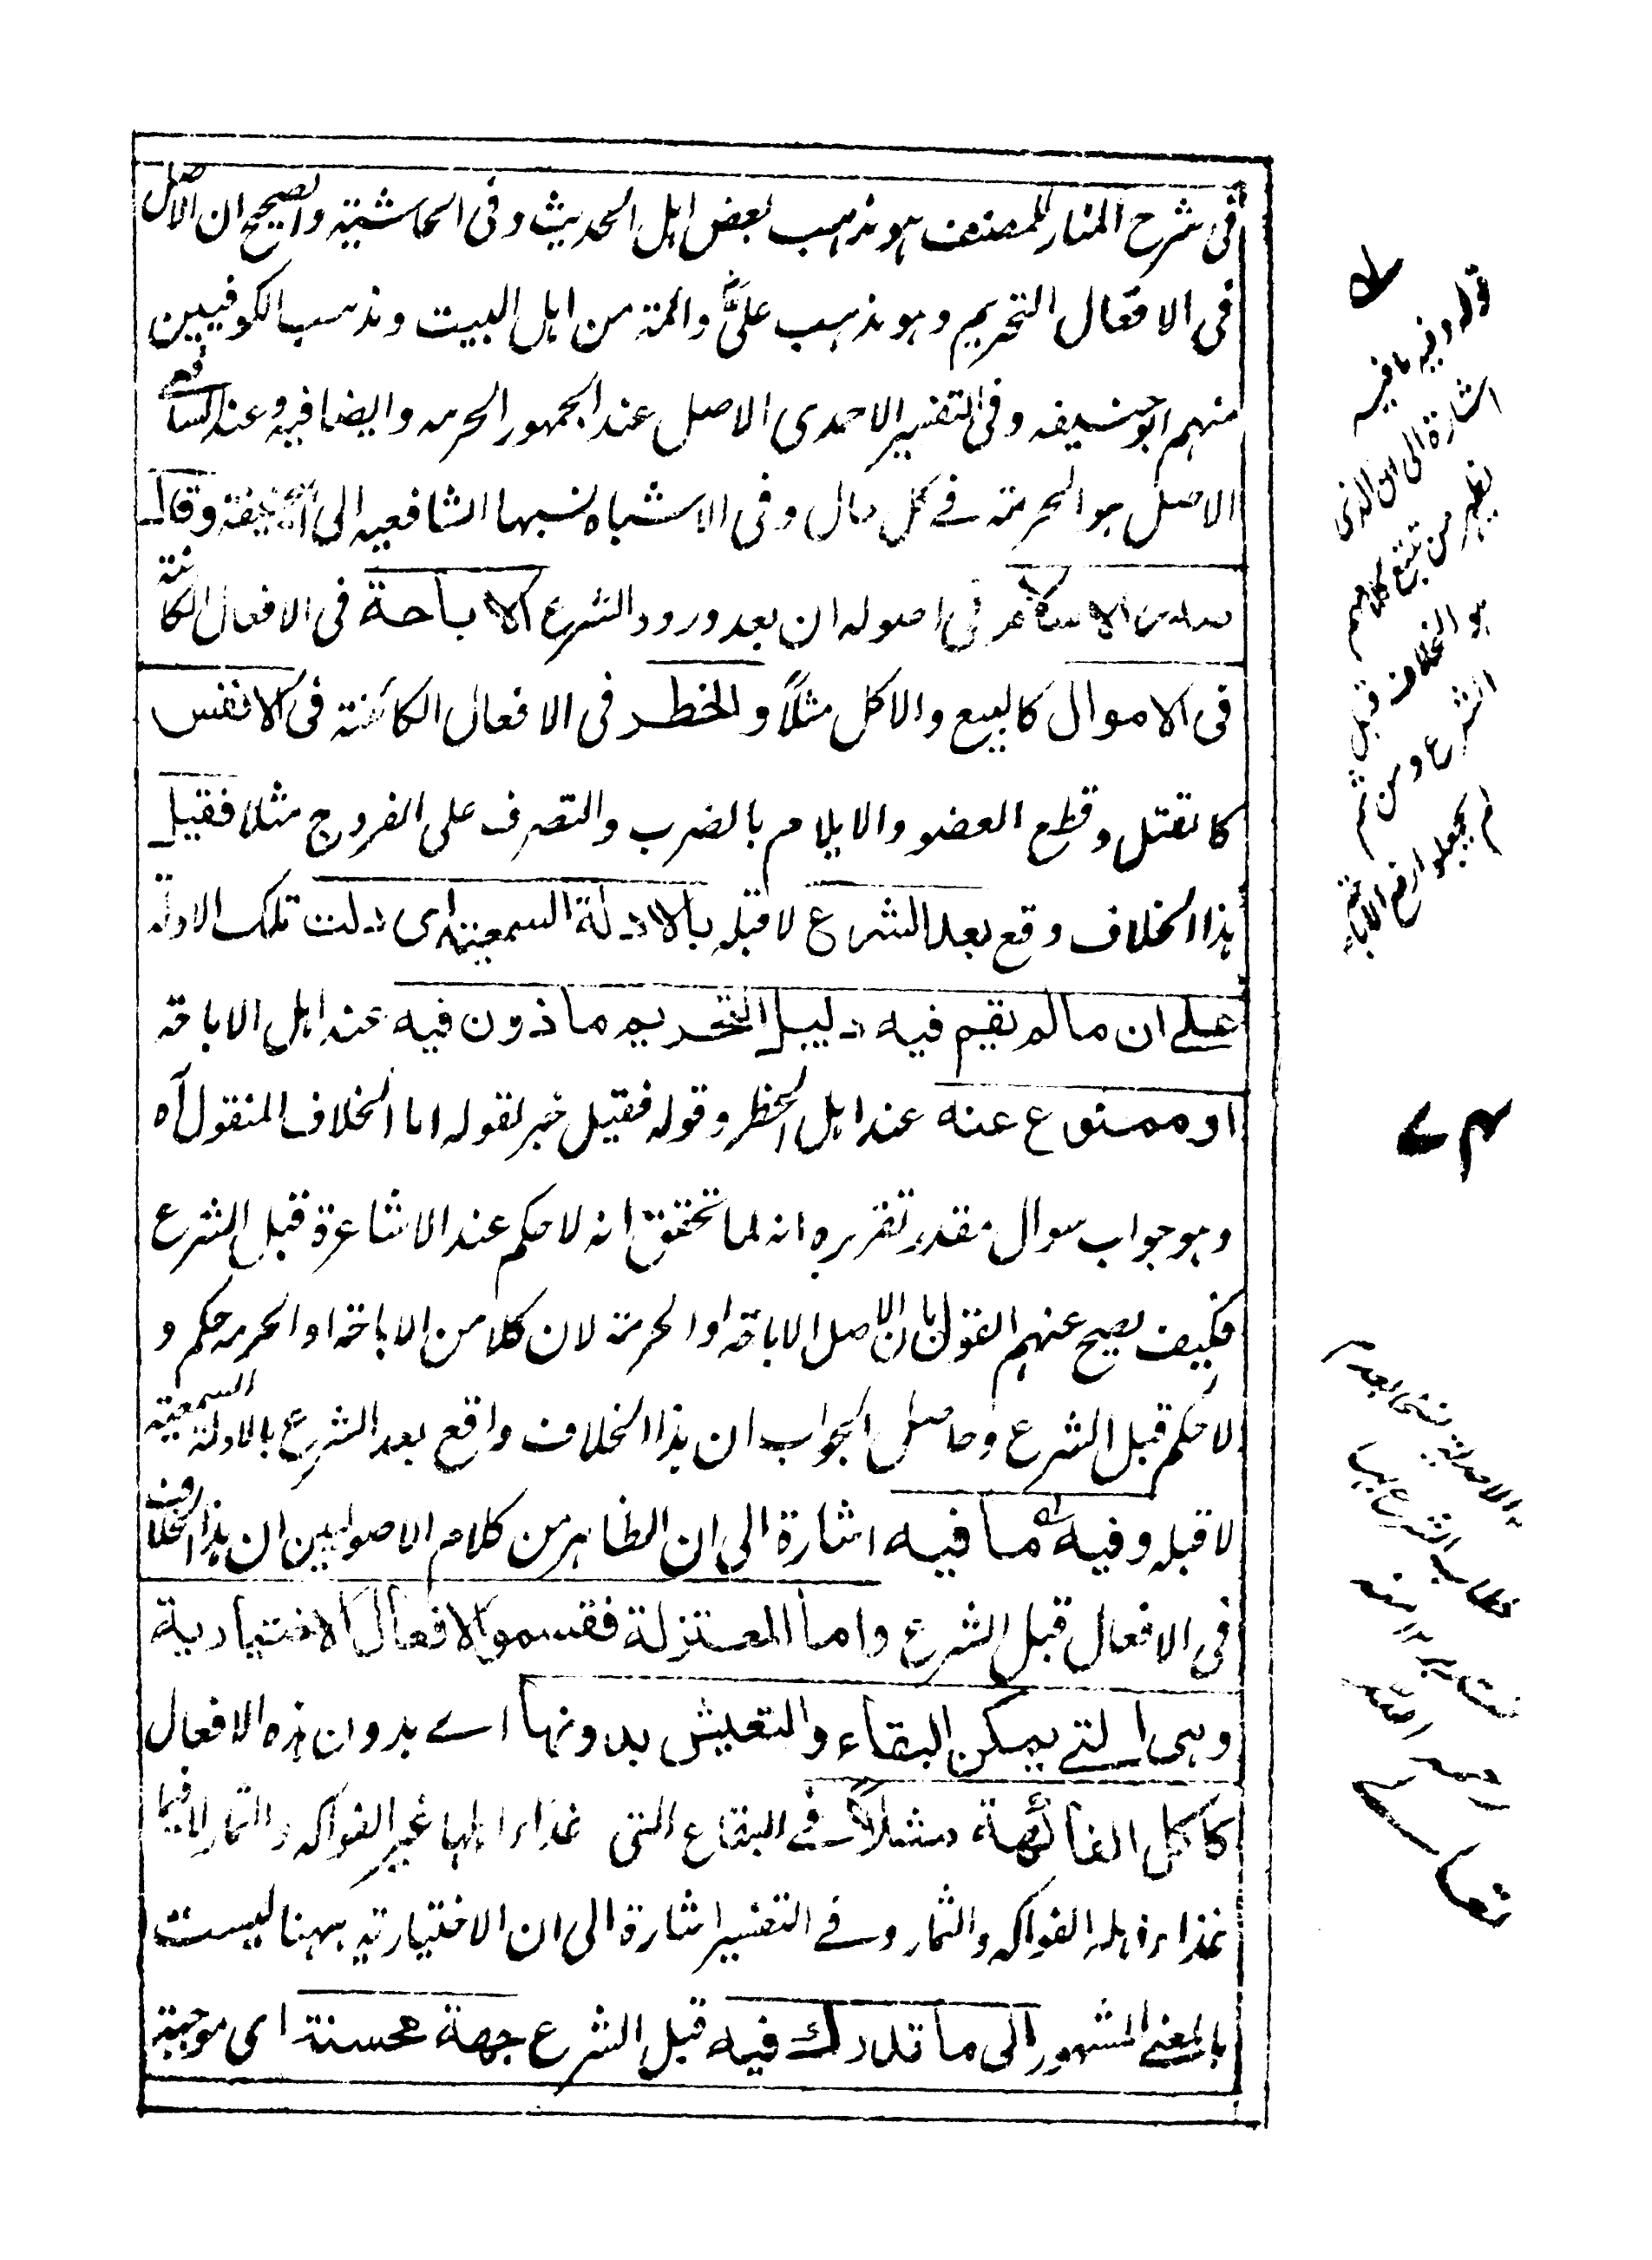 في شرح المنار للمصنف هو مذهب بعض اهل الحديث وفي الحاشية والصحيح ان الاصل
في الافعال التحريم وهو مذهب علىؓ وائمة من اهل البيت ومذهب الكوفيين
منهم ابو حنيفه وفي التفسير الاحمدى الاصل عند الجمهور الحرمه وايضا فيه وعند الشافعى
الاصل هو الحرمة في كل حال وفي الاشباه نسبها الشافعيه الى ابى حنيفة وقال
صدر الاسلام في اصوله ان بعد ورود الشرع الاباحة في الافعال الكائنة
في الاموال كالبيع والاكل مثلاً والخطر في الافعال الكائنة في الانفس
كالقتل وقطع العضو والايلام بالضرب والتصرف على الفروج مثلا فقيل
هذا الخلاف وقع بعد الشرع لا قبله بالادلة السمعية اى دلت تلك الادلة
على ان ما لم يقم فيه دليل التحريم ماذون فيه عند اهل الاباحة
او ممنوع عنه عند اهل الحظر وقوله فقيل خبر لقوله اما الخلاف المنقول آه
وهو جواب سوال مقدر تقريره انه لما تحقق انه لا حكم عند الاشاعرة قبل الشرع
فكيف يصح عنهم القول بان الاصل الاباحة او الحرمة لان كلا من الاباحة او الحرمه حكم و
لا حكم قبل الشرع وحاصل الجواب ان هذا الخلاف واقع بعد الشرع بالادلة السمعية
لا قبله وفيه ما فيه اشارة الى ان الظاهر من كلام الاصوليين ان هذا الخلاف
في الافعال قبل الشرع واما المعتزلة فقسموا الافعال الاختيارية
وهى التے يمكن البقاء والتعيش بدونها اے بدون هذه الافعال
كاكل الفاكهة مثلاً فے البقاع التى غذاء اهلها غير الفواكه والثمار لا فيما
غذاء اهله الفواكه والثمار وفے التفسير اشارة الى ان الاختيارية ههنا ليست
بالمعنے المشهور الى ما تدرك فيه قبل الشرع جهة محسنة اى موجبة
قوله وفيه ما فيه
اشارة الى ان الذى
يظهر من تتبع كلامهم
هو الخلاف قبل
الشرع ومن ثم
لم يجعلوا رفع الاباحة